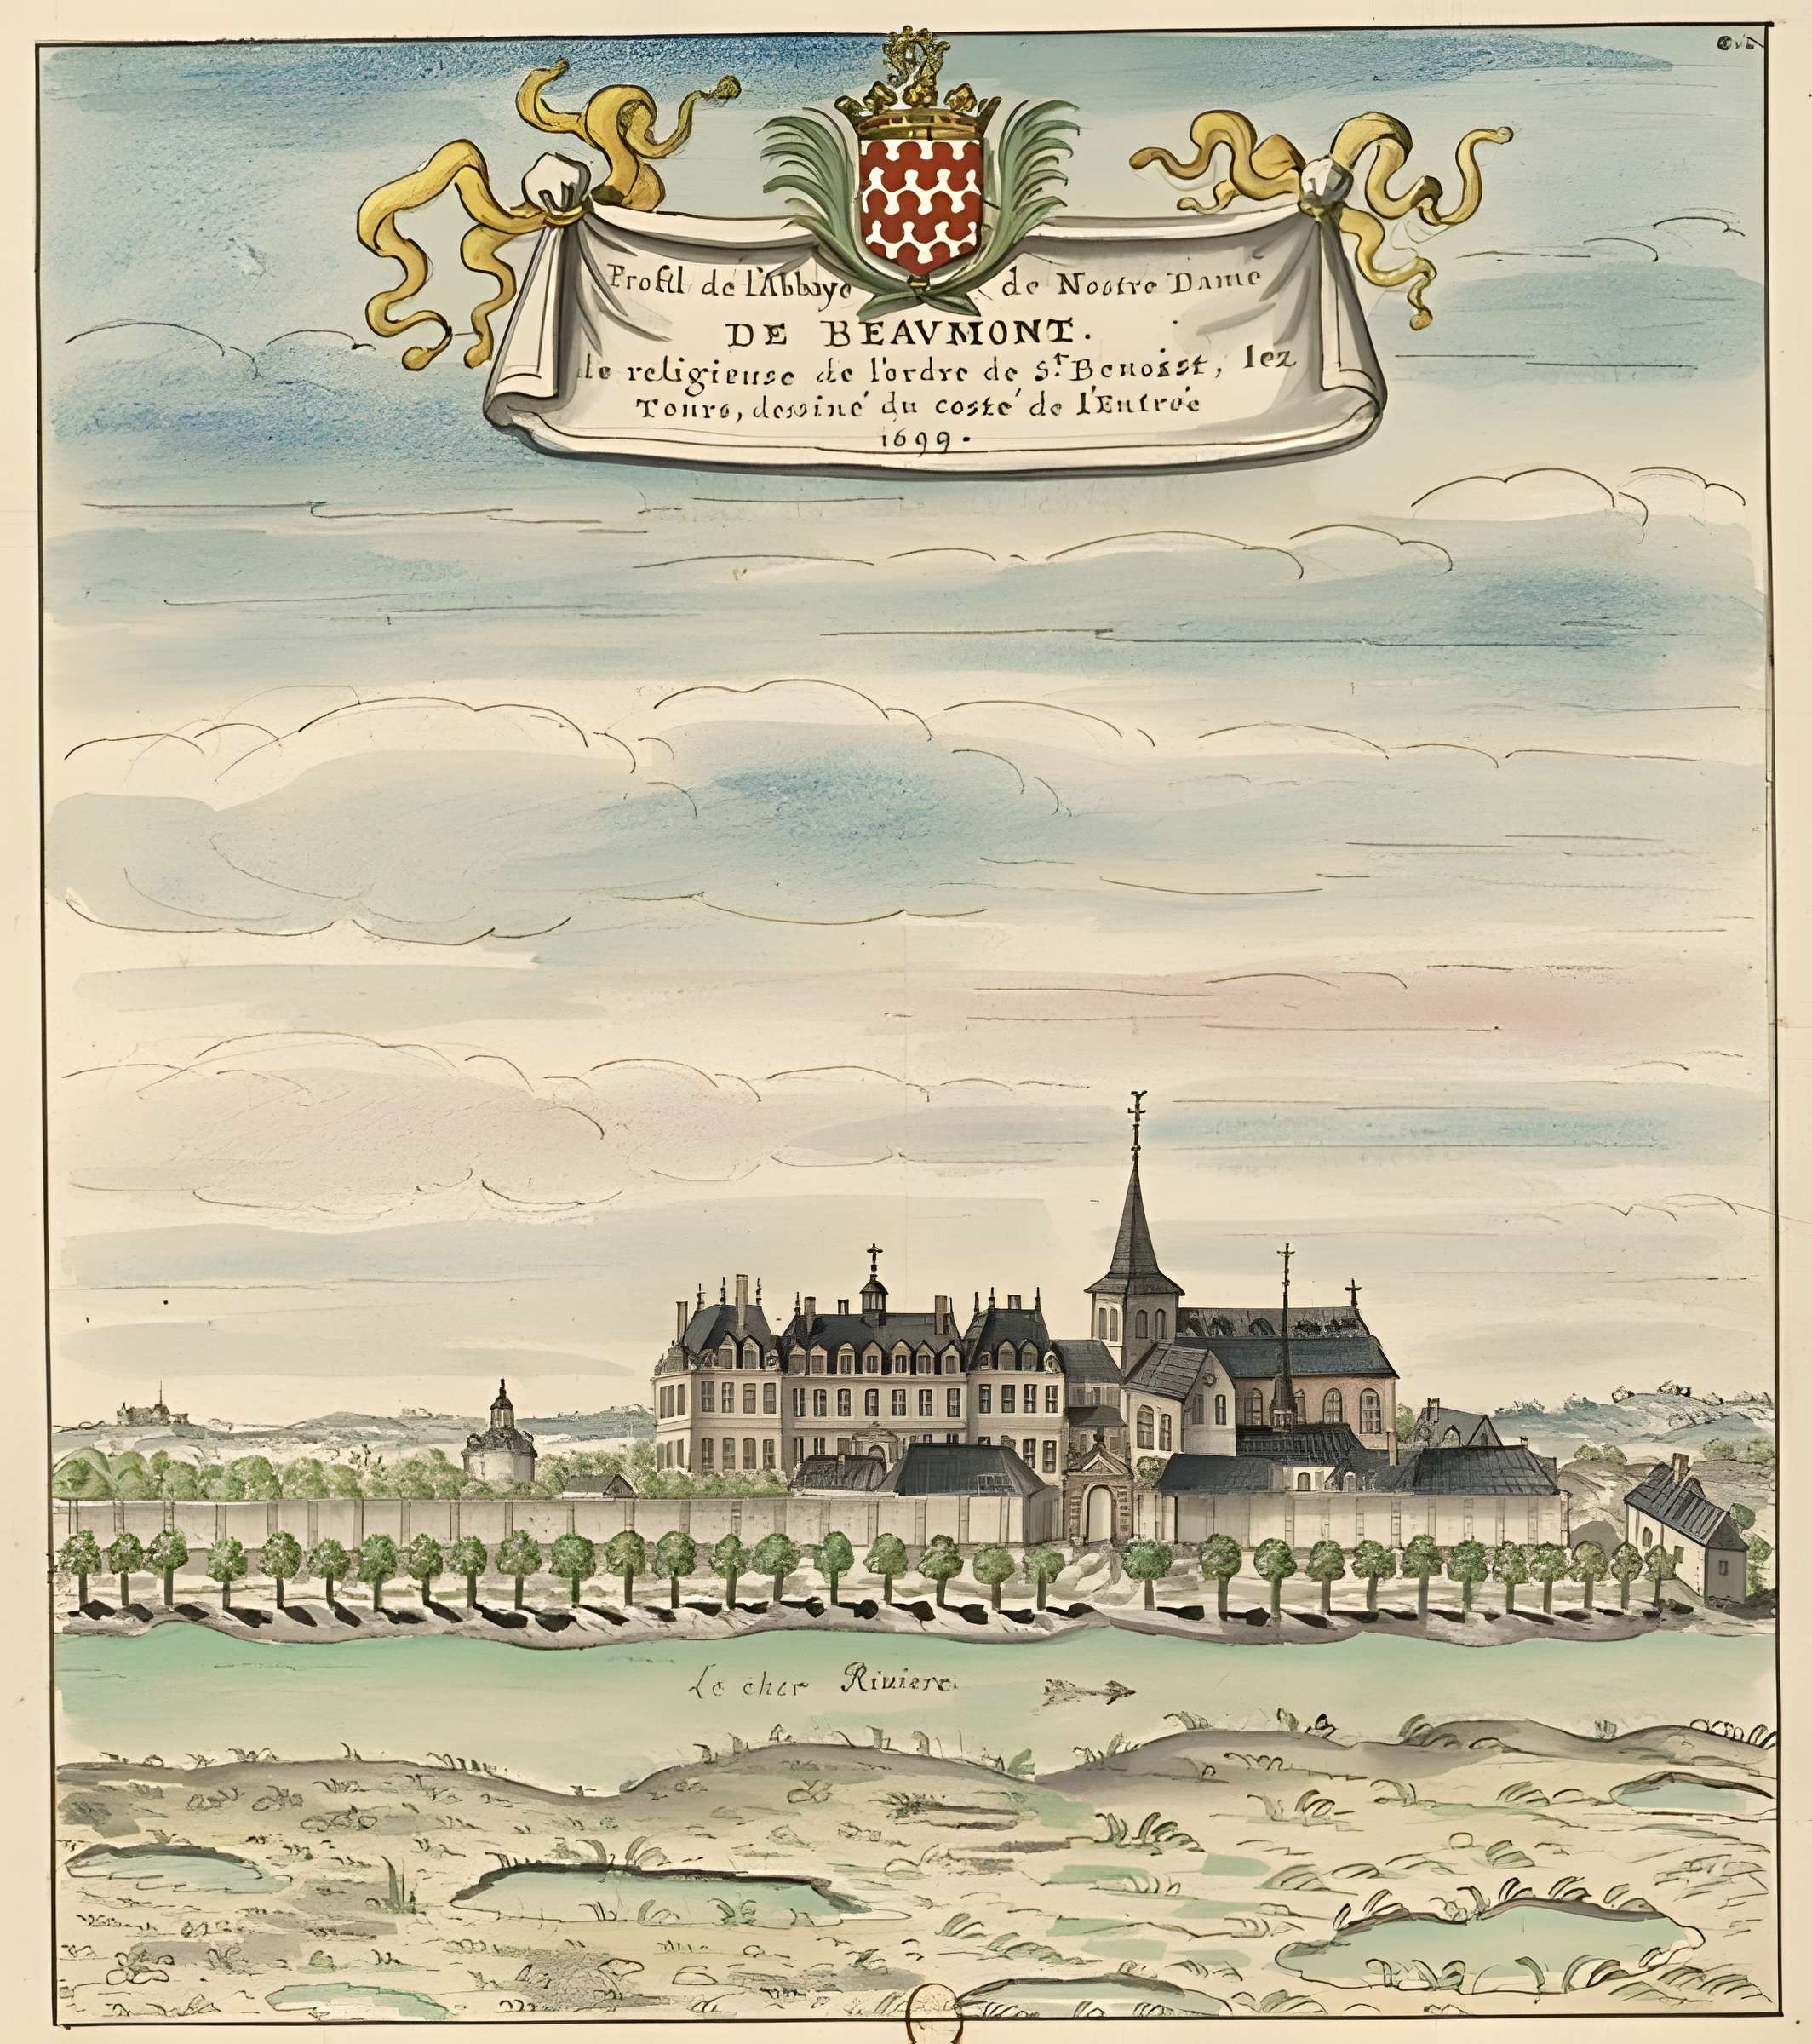 Profil de l'Abbaye de Nostre Dame
DE BEAVMONT.
de religieuse de l'ordre de St. Benoist, lez
Tours, dessiné du costé de l'Entrée
1699.
Le cher Riviere